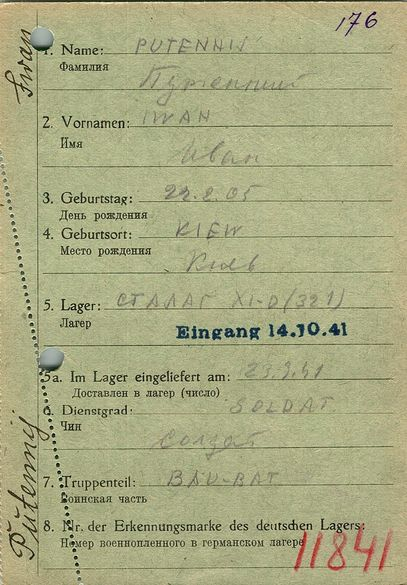 176
1. Name: PUTENNIJ
Фамилия
Путенний
2. Vornamen: IWAN
Имя
Иван
3. Geburtstag: 22.2.05
День рождения
4. Geburtsort: KIEW
Место рождения
Киев
5. Lager: СТАЛАГ XI-D (321)
Лагер
Eingang 14.10.41
5a. Im Lager eingeliefert am: 23.9.41
Доставлен в лагер (число)
6. Dienstgrad: SOLDAT
Чин
Солдат
7. Truppenteil: BAU-BAT
Воинская часть
8. Nr. der Erkennungsmarke des deutschen Lagers:
Номер военнопленного в германском лагере
11841
Putennij Iwan